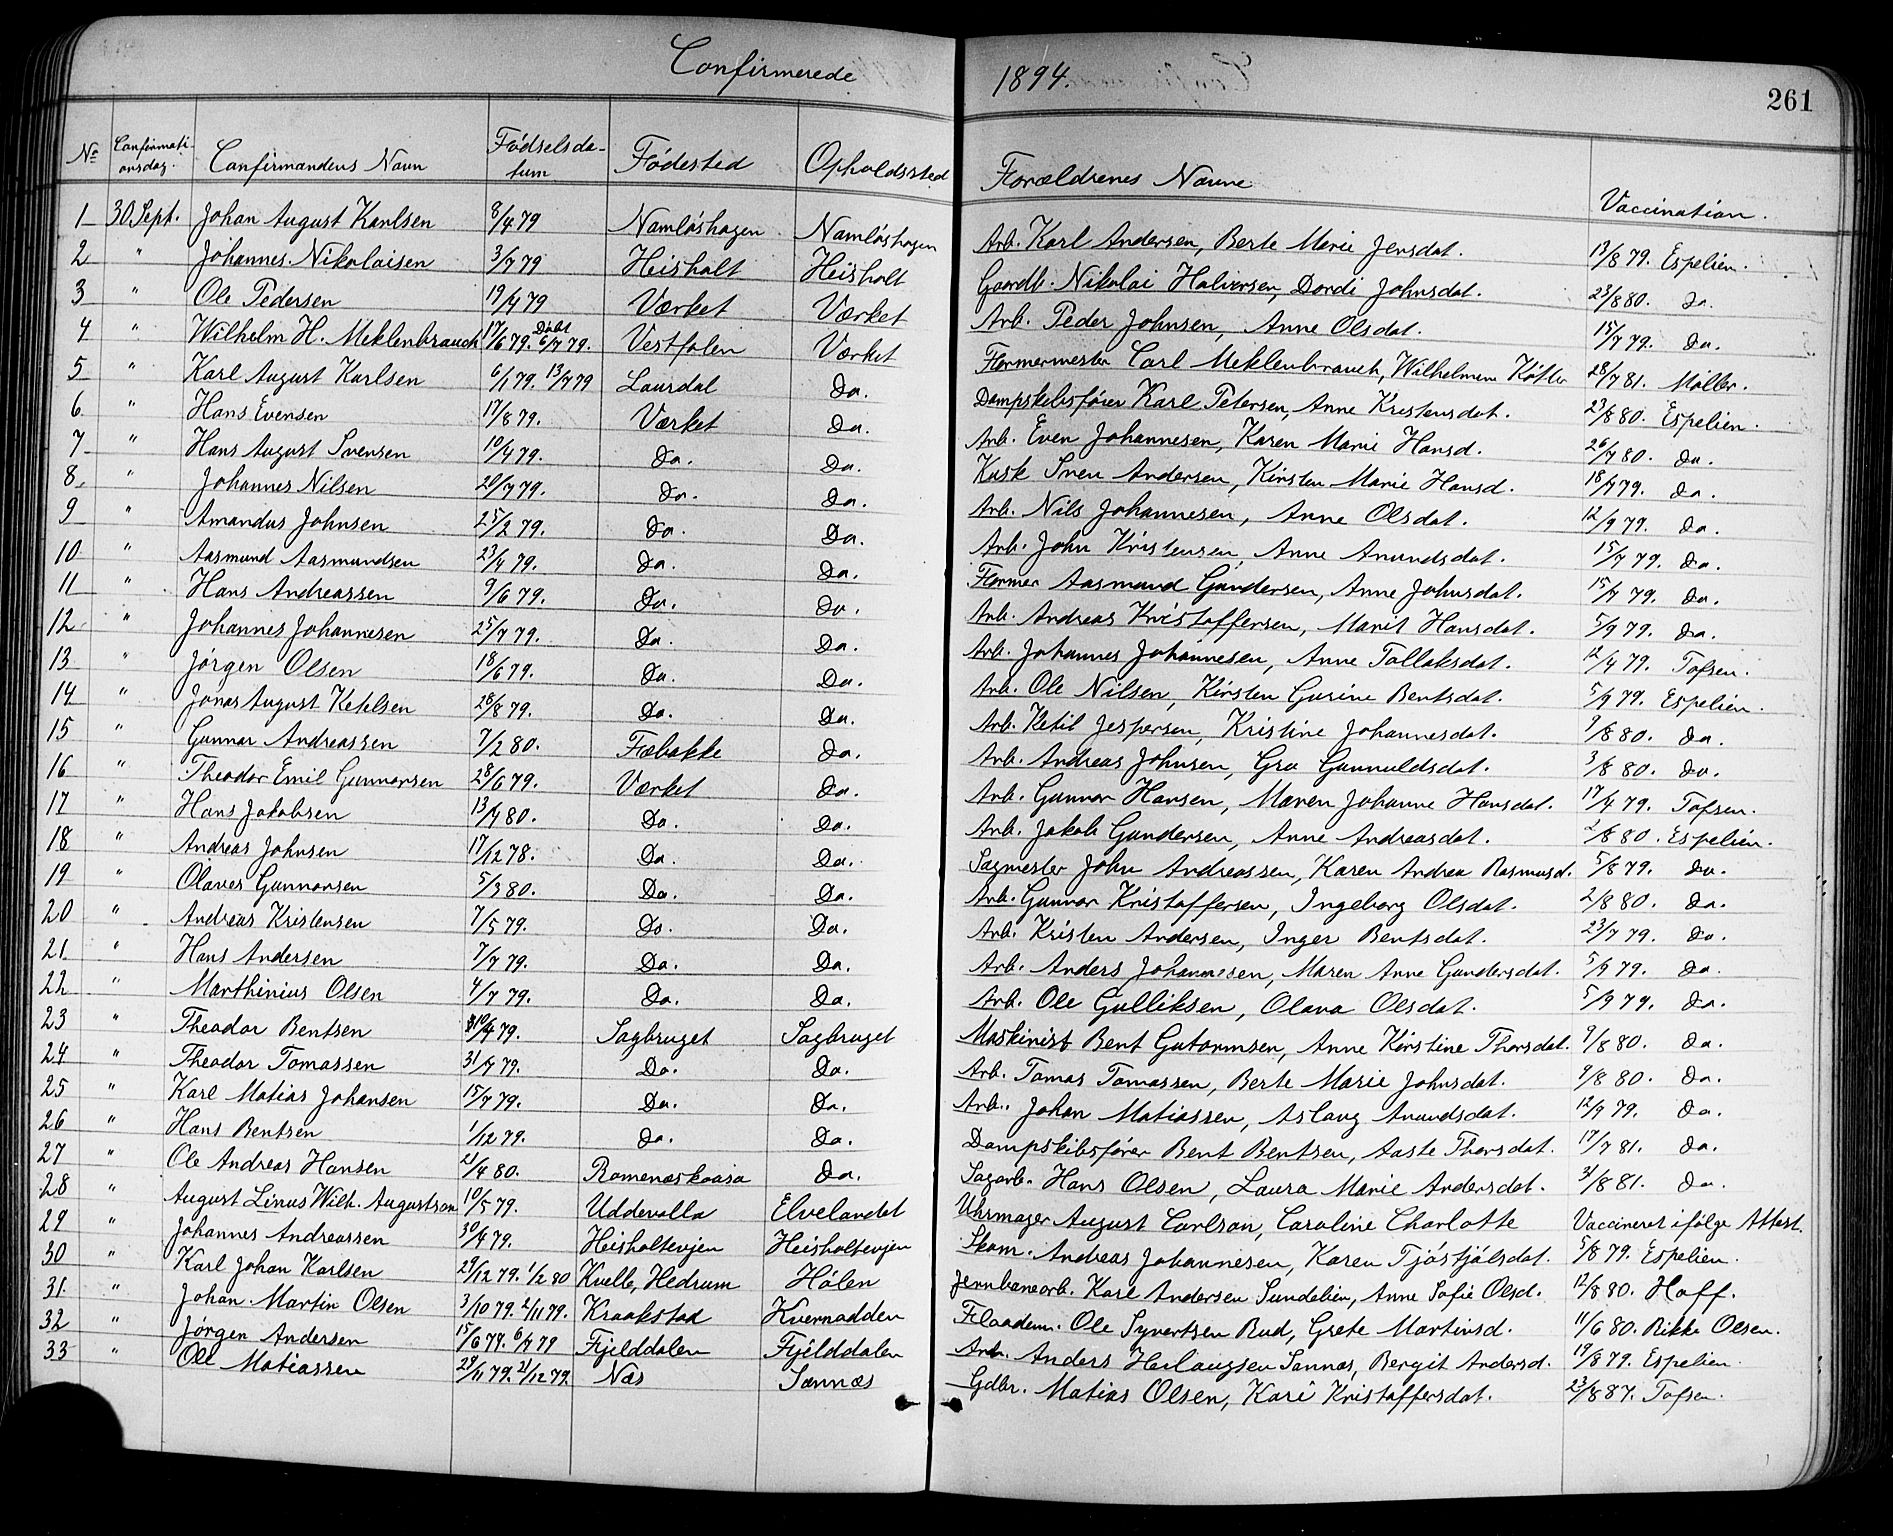 Confirmerede 1894. 261
No Confirmationsdag. Confirmandens Navn Fødselsdatum Fødested Opholdssted Forældrenes Navne Vaccination.
1 30 Sept. Johan August Karlsen 8/4 79 Namløshagen Namløshagen Arb. Karl Andersen, Berte Marie Jensdat. 13/8 79. Espelien.
2 " Johannes Nikolaisen 3/7 79 Heisholt Heisholt Gaardb. Nikolai Halvorsen, Dordi Johnsdat. 23/8 80. Do.
3 " Ole Pedersen 19/4 79 Værket Værket Arb. Peder Johnsen, Anne Olsdat. 15/7 79. Do.
4 " Wilhelm H. Meklenbrauck 17/6 79. Døbt 6/7 79. Vestfalen Værket Formermester Carl Meklenbrauck, Wilhelmine 28/7 81. Møller.
5 " Karl August Karlsen 6/1 79. 13/7 79 Laurdal Do. Dampskibsfører Karl Petersen, Anne Kristensdat. 23/8 80. Espelien.
6 " Hans Evensen 17/8 79. Værket Do. Arb. Even Johannesen, Karen Marie Hansd. 26/7 80. Do.
7 " Hans August Svensen 10/4 79. Do. Do. Kusk Sven Andersen, Kirsten Marie Hansd. 18/7 79. Do.
8. " Johannes Nilsen 20/7 79. Do. Do. Arb. Nils Johannesen, Anne Olsdat. 12/9 79. Do.
9 " Amandus Johnsen 25/2 79. Do. Do. Arb. John Kristensen Anne Anundsdat. 15/7 79. Do.
10 " Aasmund Aasmundsen 23/4 79. Do. Do. Former Aasmund Gundersen, Anne Johnsdat. 15/7 79. Do.
11 " Hans Andreassen 9/6 79. Do. Do. Arb. Andreas Kristoffersen, Marit Hansdat. 5/9 79. Do.
12 " Johannes Johannesen 25/7 79. Do. Do. Arb. Johannes Johannesen, Anne Tollaksdat. 12/4 79. Tofsen.
13 " Jørgen Olsen 18/6 79. Do. Do. Arb. Ole Nilsen, Kirsten Gurine Bentsdat. 5/9 79. Espelien.
14 " Jonas August Ketilsen 28/8 79. Do. Do. Arb. Ketil Jespersen, Kristine Johannesdat. 9/8 80. Do.
15 " Gunnar Andreassen 7/2 80. Fæbakke Do. Arb. Andreas Johnsen, Gro Gunnuldsdat. 3/8 80. Do.
16 " Theodor Emil Gunnarsen 28/6 79. Værket Do. Arb. Gunnar Hansen, Maren Johanne Hansdat. 17/4 79. Tofsen.
17 " Hans Jakobsen 13/4 80. Do. Do. Arb. Jakob Gundersen, Anne Andreasdat. 2/8 80. Espelien.
18 " Andreas Johnsen 17/12 78. Do. Do. Sagmester John Andreassen, Karen Andrea Rasmusd. 5/8 79. Do.
19 " Olaves Gunnarsen 5/3 80. Do. Do. Arb. Gunnar Kristoffersen, Ingeborg Olsdat. 2/8 80. Do.
20 " Andreas Kristensen 7/5 79. Do. Do. Arb. Kristen Andersen, Inger Bentsdat. 23/7 79. Do.
21 " Hans Andersen 7/7 79. Do. Do. Arb. Anders Johannesen, Maren Anne Gundersdat. 5/9 79. Do.
22 " Marthinius Olsen 4/7 79. Do. Do. Arb. Ole Gulliksen, Olava Olsdat. 5/9 79. Do.
23 " Theodor Bentsen 10/4 79. Sagbruget Sagbruget Maskinist Bent Gutormsen, Anne Kirstine Thorsdat. 9/8 80. Do.
24 " Theodor Tomassen 31/7 79. Do. Do. Arb. Tomas Tomassen, Berte Marie Johnsdat. 9/8 80. Do.
25 " Karl Matias Johansen 15/7 79. Do. Do. Arb. Johan Matiassen, Aslaug Anundsdat. 12/9 79. Do.
26 " Hans Bentsen 1/12 79. Do. Do. Dampskibsfører Bent Bentsen, Aaste Thorsdat. 17/7 81. Do.
27 " Ole Andreas Hansen 21/4 80. Romenæskaasa Do. Sagarb. Hans Olsen, Laura Marie Andersdat. 3/8 81. Do.
28 " August Linus Wilh. Augustson 10/5 79. Uddevalla Elvelandet Uhrmager August Carlson, Caroline Charlotte Vaccineret ifølge Attest.
29 " Johannes Andreassen 30/4 79. Heisholtevjen Heisholtevjen Skom. Andreas Johannesen, Karen Tjøstjølsdat. 5/8 79. Espelien.
30 " Karl Johan Karlsen 29/12 79. 1/2 80 Kvelle, Hedrum Hølen Jernbanearb. Karl Andersen Sundelien, Anne Sofie Olsd. 12/8 80. Hoff.
31. " Johan Martin Olsen 3/10 79. 2/11 79. Kraakstad Kvernodden Flaadem. Ole Syvertsen Rud, Grete Martinsd. 11/6 80. Rikke Olsen.
32 " Jørgen Andersen 15/6 79. 6/7 79 Fjelddalen Fjelddalen Arb. Anders Heilaugsen Sannæs, Bergit Andersd. 19/8 79. Espelien.
33 " Ole Matiassen 29/11 79. 21/12 79. Næs Sannæs Gdbr. Matias Olsen, Kari Kristoffersdat. 23/8 87. Tofsen.